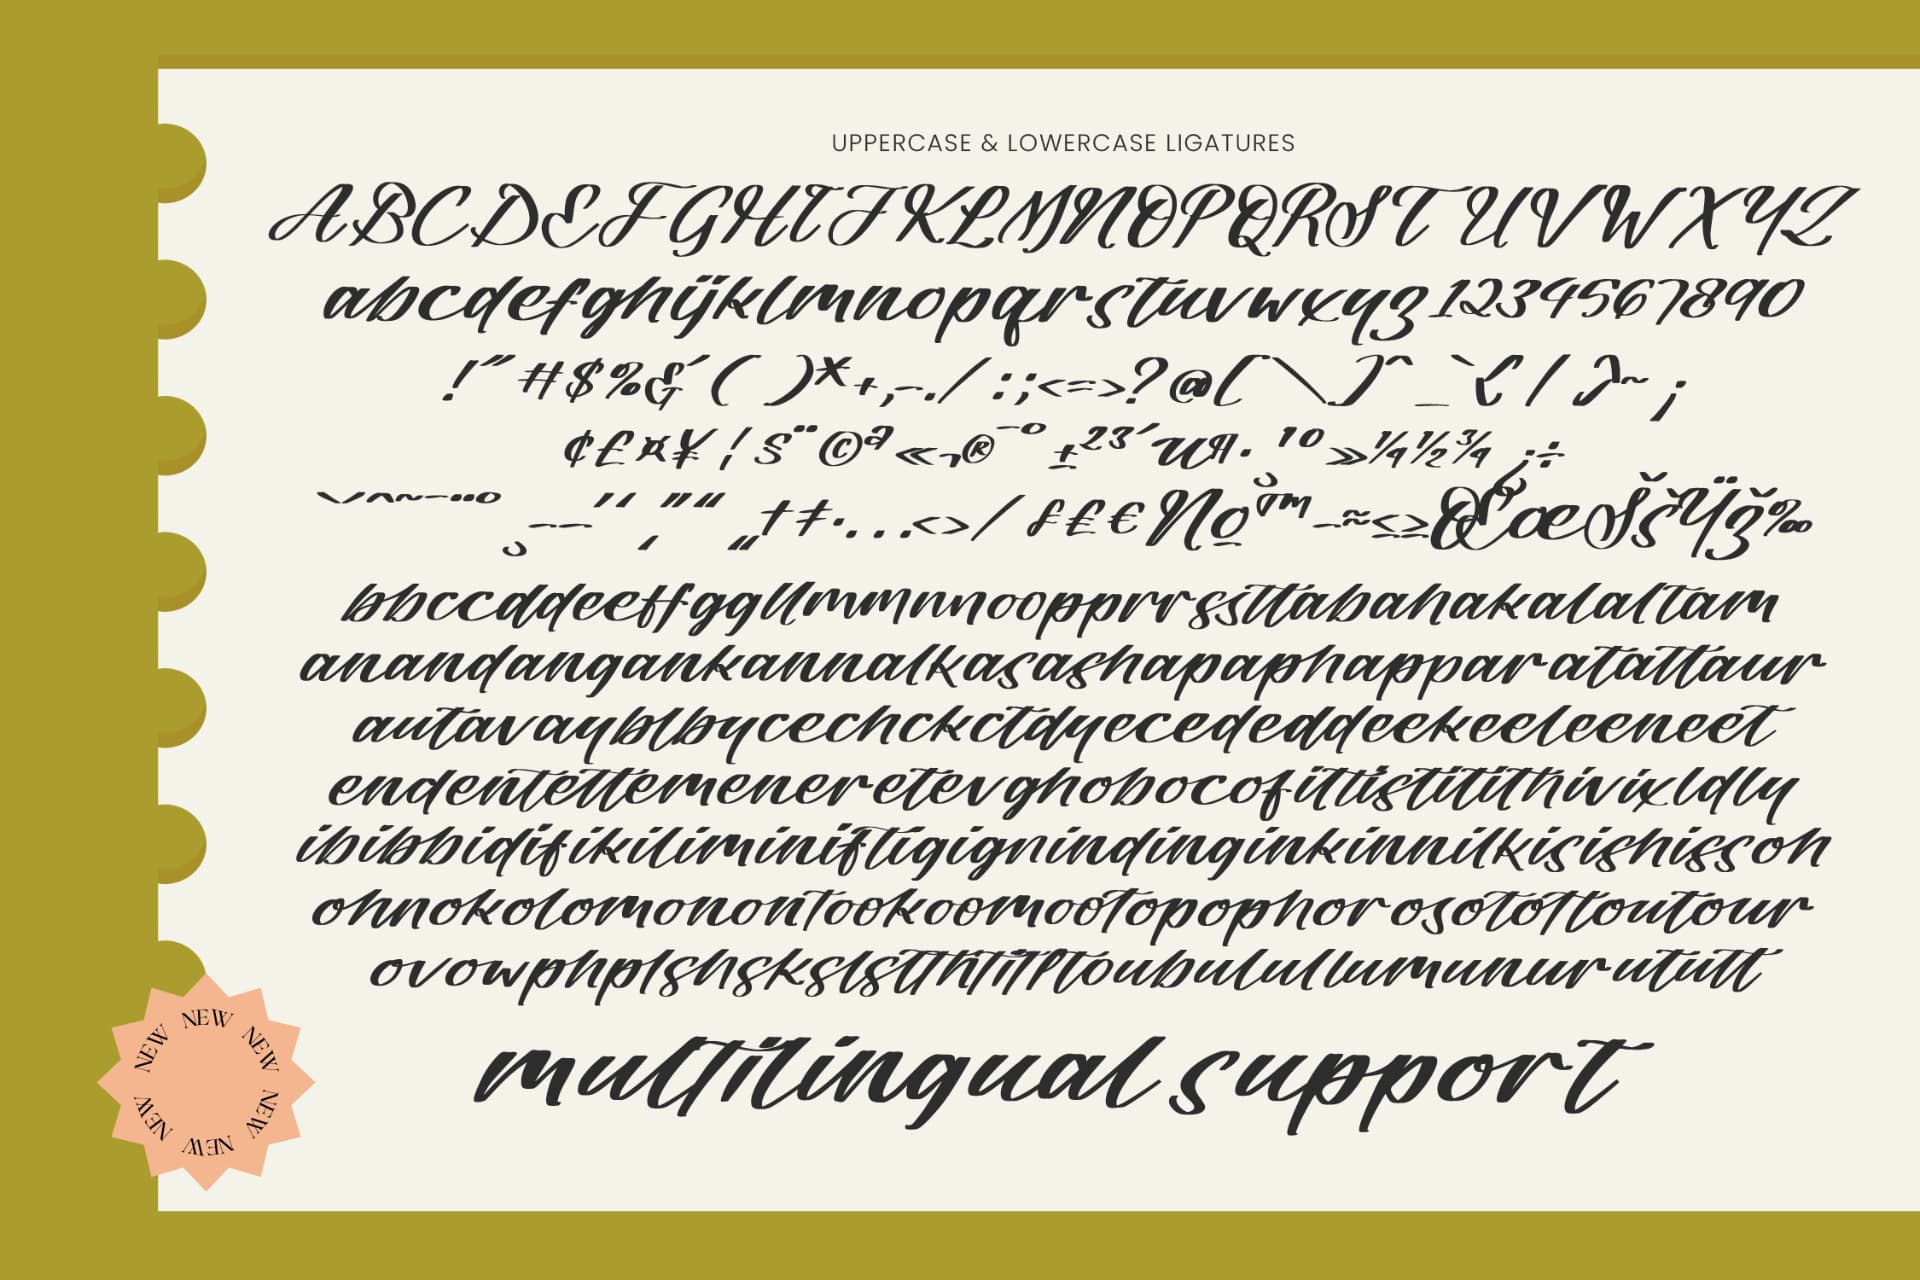 UPPERCASE & LOWERCASE LIGATURES
ABCDEFGHIJKLMNOPQRSTUVWXYZ
abcdefghijklmnopqrstuvwxyz1234567890
!"#$%&'( )*+,-./:;<=>?@[\]^_`{|}~¡
¢£¤¥¦§¨©ª«¬®¯°±²³´µ¶·¸¹º»¼½¾¿÷
bbccddeeffggllmmnnoopprrssttabahakalaltam
anandangankannalkasashapaphapparatattaur
autavayblbycechckctdyecededdeekeeleeneet
endentettemeneretetevghobocofittistitithivixldly
ibibbidifikiliminiftigignindinginkinnilkisishissoh
ohnokolomonontookoomootopophorosotottoutour
ovowphplshskslstthtitltoubulullumunurututt
multilingual support
NEW NEW NEW NEW NEW NEW